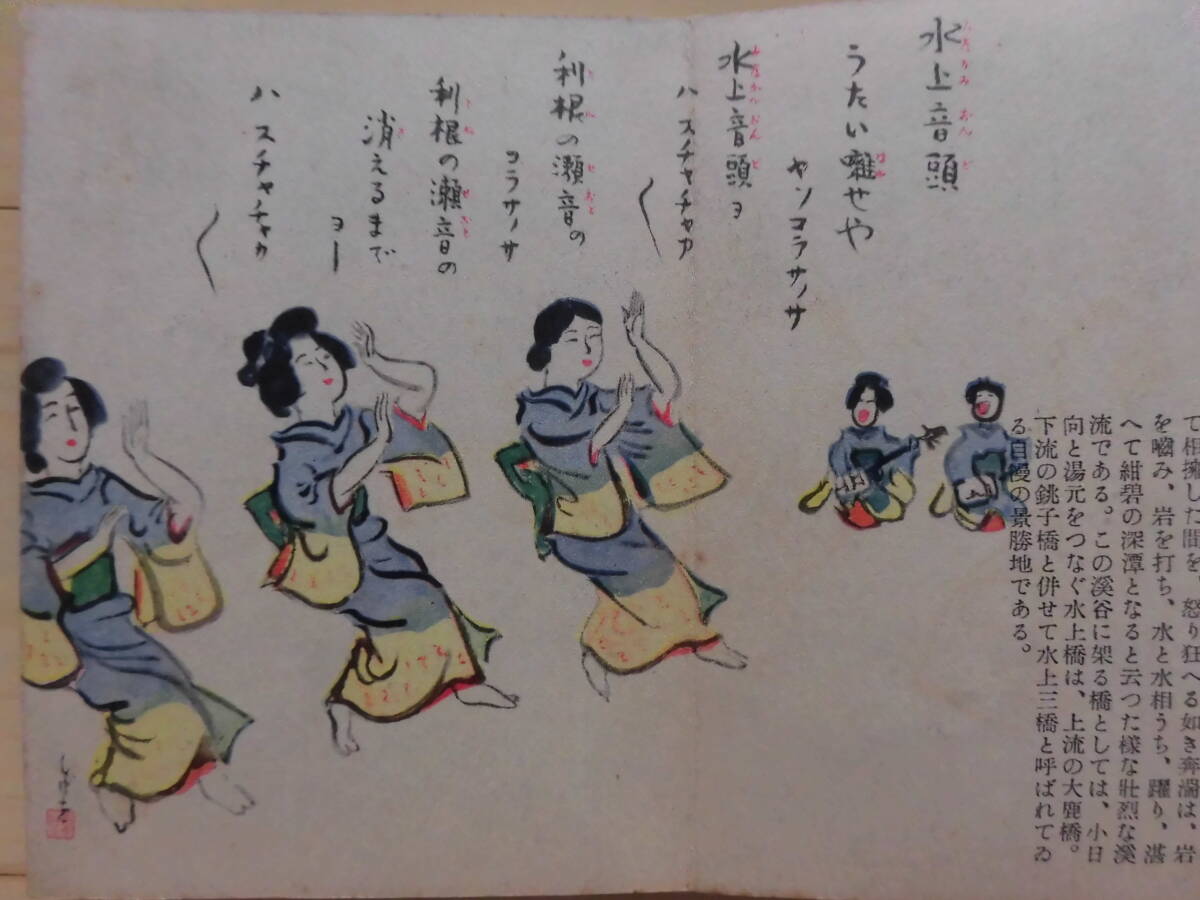 て相擁した間を、怒り狂へる如き奔湍は、岩
を嚙み、岩を打ち、水と水相うち、躍り、湛
へて紺碧の深潭となると云つた樣な壯烈な溪
流である。この溪谷に架る橋としては、小日
向と湯元をつなぐ水上橋は、上流の大鹿橋。
下流の銚子橋と併せて水上三橋と呼ばれてゐ
る自慢の景勝地である。
水上音頭
うたい囃せや
ヤンコラサノサ
水上音頭ヨ
ハ スチャチャカ 〱
利根の瀬音の
コラサノサ
利根の瀬音の
消えるまで
ヨー
ハ スチャチャカ 〱